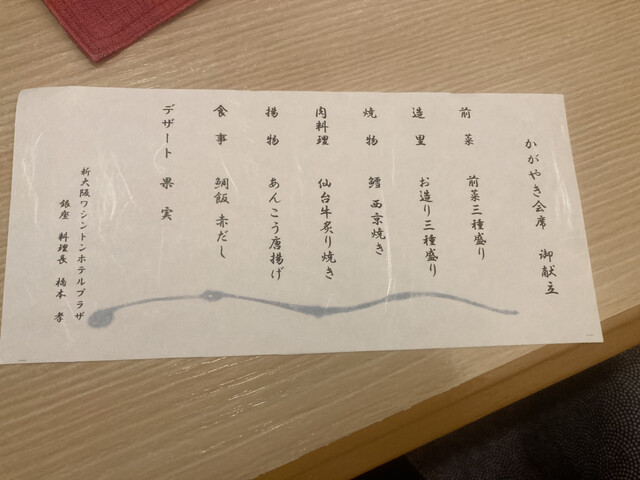 かがやき会席 御献立
前菜 前菜三種盛り
造里 お造り三種盛り
焼物 鱈 西京焼き
肉料理 仙台牛炙り焼き
揚物 あんこう唐揚げ
食事 鯛飯 赤だし
デザート 果実
新大阪ワシントンホテルプラザ
銀座 料理長 橋本 孝